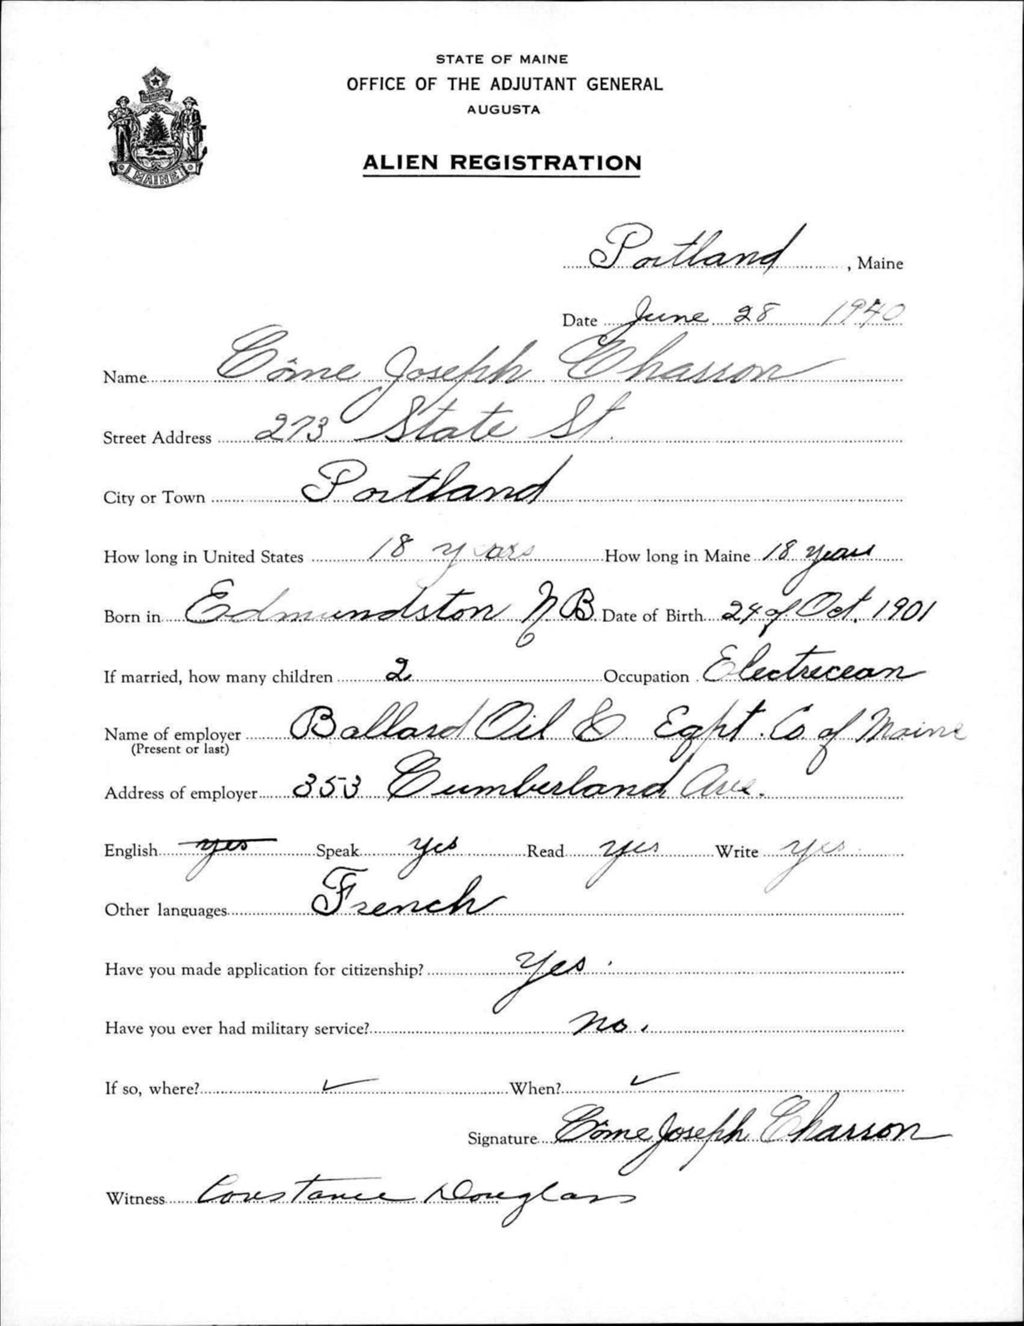 STATE OF MAINE
OFFICE OF THE ADJUTANT GENERAL
AUGUSTA
ALIEN REGISTRATION
MAINE
Portland, Maine
Date June 28 1940
Name Côme Joseph Chasson
Street Address 273 State St.
City or Town Portland
How long in United States 18 years How long in Maine 18 years
Born in Edmundston N.B. Date of Birth 24 of Oct. 1901
If married, how many children 2 Occupation Electricean
Name of employer Ballard Oil & Eqpt. Co. of Maine
(Present or last)
Address of employer 353 Cumberland Ave.
English yes Speak yes Read yes Write yes
Other languages French
Have you made application for citizenship? Yes.
Have you ever had military service? no.
If so, where? ✓ When? ✓
Signature Côme Joseph Chasson
Witness Constance Douglass